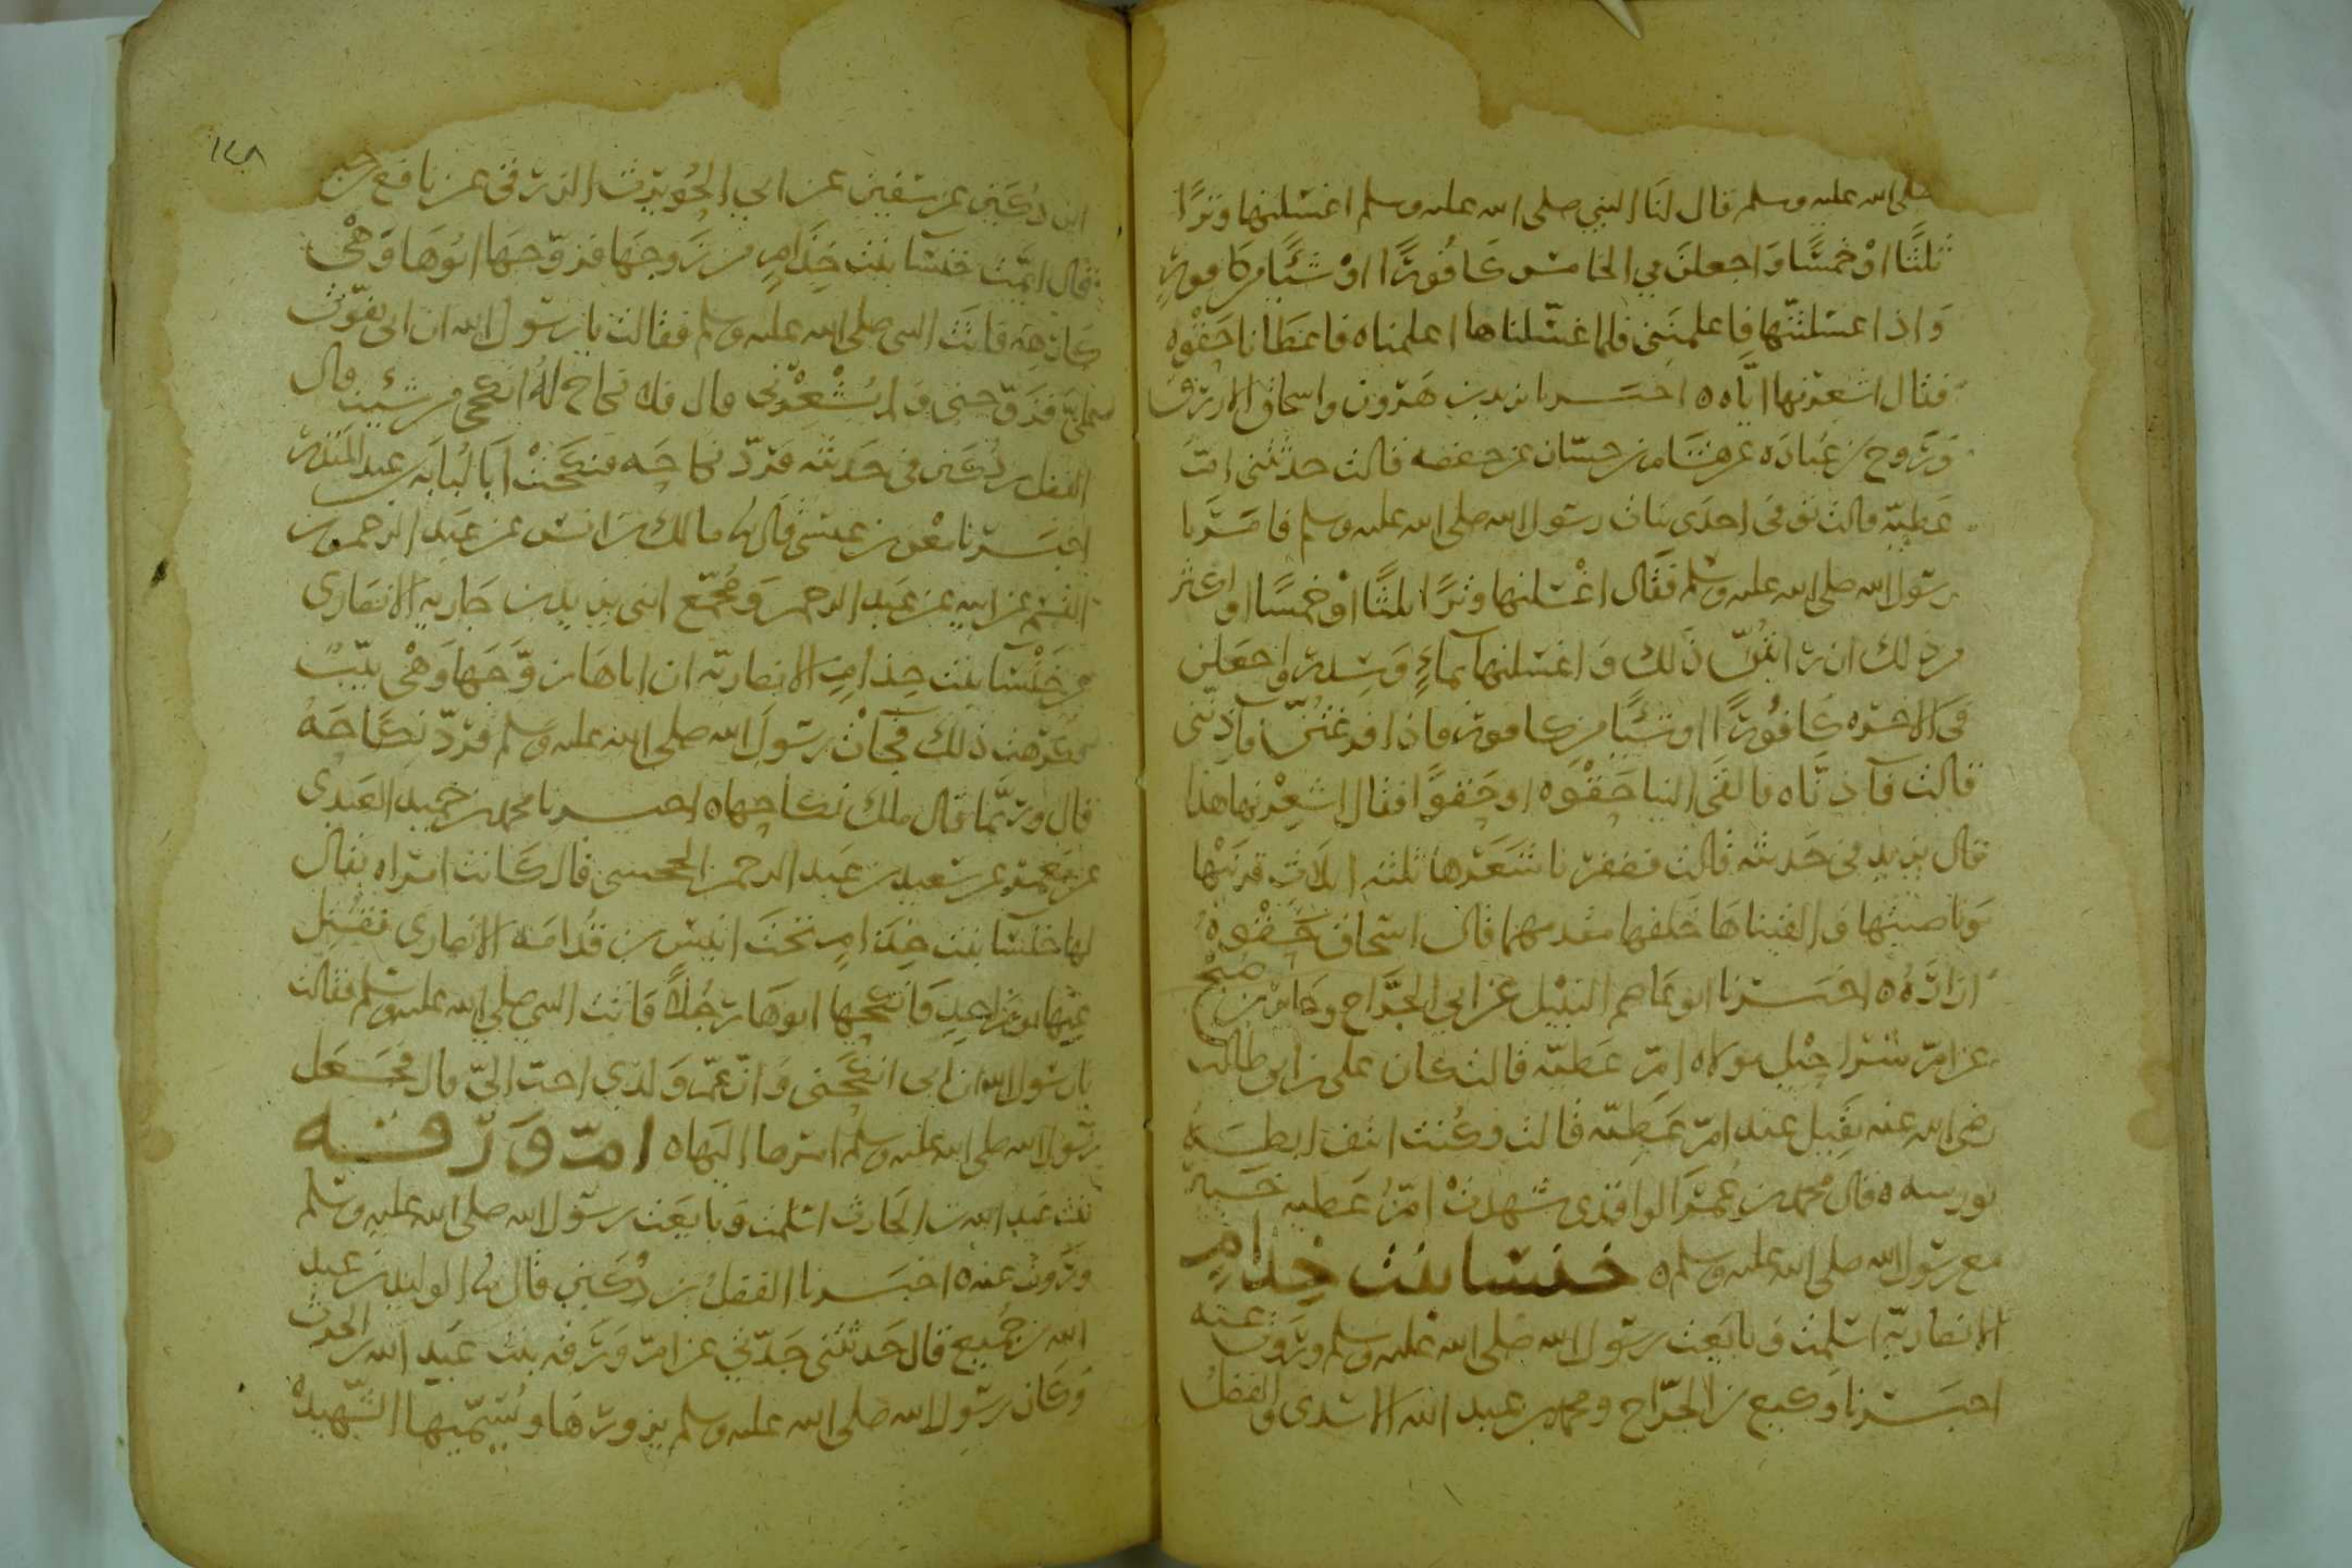 صلى الله عليه وسلم قال لنا النبي صلى الله عليه وسلم اغسلنها وترًا
ثلثًا اوْ خمسًا وَاجعلنَ في الخامسه كافُورًا اوْ شيًا من كافورٍ
وَاذا غسلتنّها فاعلمنَنِي فلما غسّلناها اعلمناه فاعطانا حَقْوه
فقال اشعِرْنها ايّاه ٥ اخبَرنا يزيد بن هَرُون واسحاق الازرق
وَرَوح بن عُبادَه عن هشام بن حسّان عن حفصه قالت حدثتني امّ
عَطيّة قالت توفى احدَى بنات رسول الله صلى الله عليه وسلم فامَرَنا
رسول الله صلى الله عليه وسلم فقَال اغْسلنها وترًا ثلثًا اوْ خمسًا او اكثر
من ذلك ان رايتُنّ ذلك وَاغسلنها بماءٍ وَسِدر واجعَلن
في الاخره كافُورًا او شيًا من كافور فاذا فرغتُنّ فآذِنّني
قالت فآذنّاه فالقَى الينا حَقْوه او حَقوًا فقال اشعِرْنها هذا
قال يزيد في حَديثه قالت فضفرنا شَعَرها ثلثه اثلاث قرنَيْها
وَناصيتها وَالقيناها خَلفها مقدمها قال اسحاق حَقْوهُ
ازارَهُ ٥ اخبَرنا ابو عَاصم النبيْل عن ابي الجَرّاح وجابر بن صُبْح
عن امّ شراحيْل مولاه امّ عَطيّه قالت كان على بن ابي طالب
رضى الله عنه يَقِيل عند امّ عَطِيّه قالت فكُنت انتف ابطَهُ
بورسه ٥ قال محمد بن عُمَر الوَاقدى شهدتْ امّ عَطيه خَيبر
مع رسول الله صلى الله عليه وسلم ٥ خنسا بنت خِذَامٍ
الانصاريّه اسلمت وَبايَعت رسول الله صلى الله عليه وسلم ورَوَت عنه
اخبَرنا وَكيع بن الجرّاح ومحمد بن عَبد الله الاسَدى وَالفضلُ
١٤٨
ابن دُكَين عن سفين عن ابي الحُويرث الزرقى عن نافع بن جبير
قال ايّمت خنسا بنت خِذَامٍ من زَوجهَا فزَوّجهَا ابُوهَا وَهْى
كارهَه فاتت النبى صلى الله عليه وسلم فقالت يا رسول الله ان ابى تفوّت
عليَّ فزَوّجنى وَلم يُشْعِرْنى قال فلا نكاح لهُ انكحى من شئت قال
الفضل بن دُكَين في حَديثه فرَدّ نكاحَه فنكَحَتْ ابَا لُبابَه بن عبد المُنذر
اخبَرنا مَعْن بن عيسَى قال نا مالك بن انس عن عَبد الرحمن بن
القسم عن ابيه عن عَبد الرحمن وَمُجمّع ابنى يزيد بن جَاريه الانصَارى
عن خَنْسَا بنت خِذامٍ الانصاريّه ان اباهَا زوَّجَها وَهْى ثيّبٌ
فكرهت ذلك فجات رسُولَ الله صلى الله عليه وسلم فرَدّ نكاحَهُ
قال ورُبّما قال ملك نكاحها ٥ اخبَرنا محمد بن حُميد العَبدى
عن مَعمر عن سَعيد بن عَبد الرحمن الجحشى قال كانت امراه يقال
لها خنسَا بنت خِذَامٍ تحَت انيس بن قتادَة الانصارى فقُتِل
عنها يومَ اُحدٍ فانكحَها ابوهَا رَجُلاً فاتت النبى صلى الله عليه وسلم فقالت
يا رسُول الله ان ابى انكحَنى وَانّ عَمّ وَلدى احبّ اليّ قال فجَعَل
رسُول الله صلى الله عليه وسلم امرها اليهَا ٥ امّ وَرَقه
بنت عَبد الله بن الحَارث اسلمت وَبايَعت رسُول الله صلى الله عليه وسلم
ورَوَت عنه ٥ اخبَرنا الفضلُ بن دُكَين قال نا الوليد بن عبد
الله بن جُميع قال حَدثتنى جَدّتي عن امّ وَرَقه بنت عَبد الله بن الحرث
وَكان رسُول الله صلى الله عليه وسلم يزورهَا ويُسَمّيها الشّهيدة